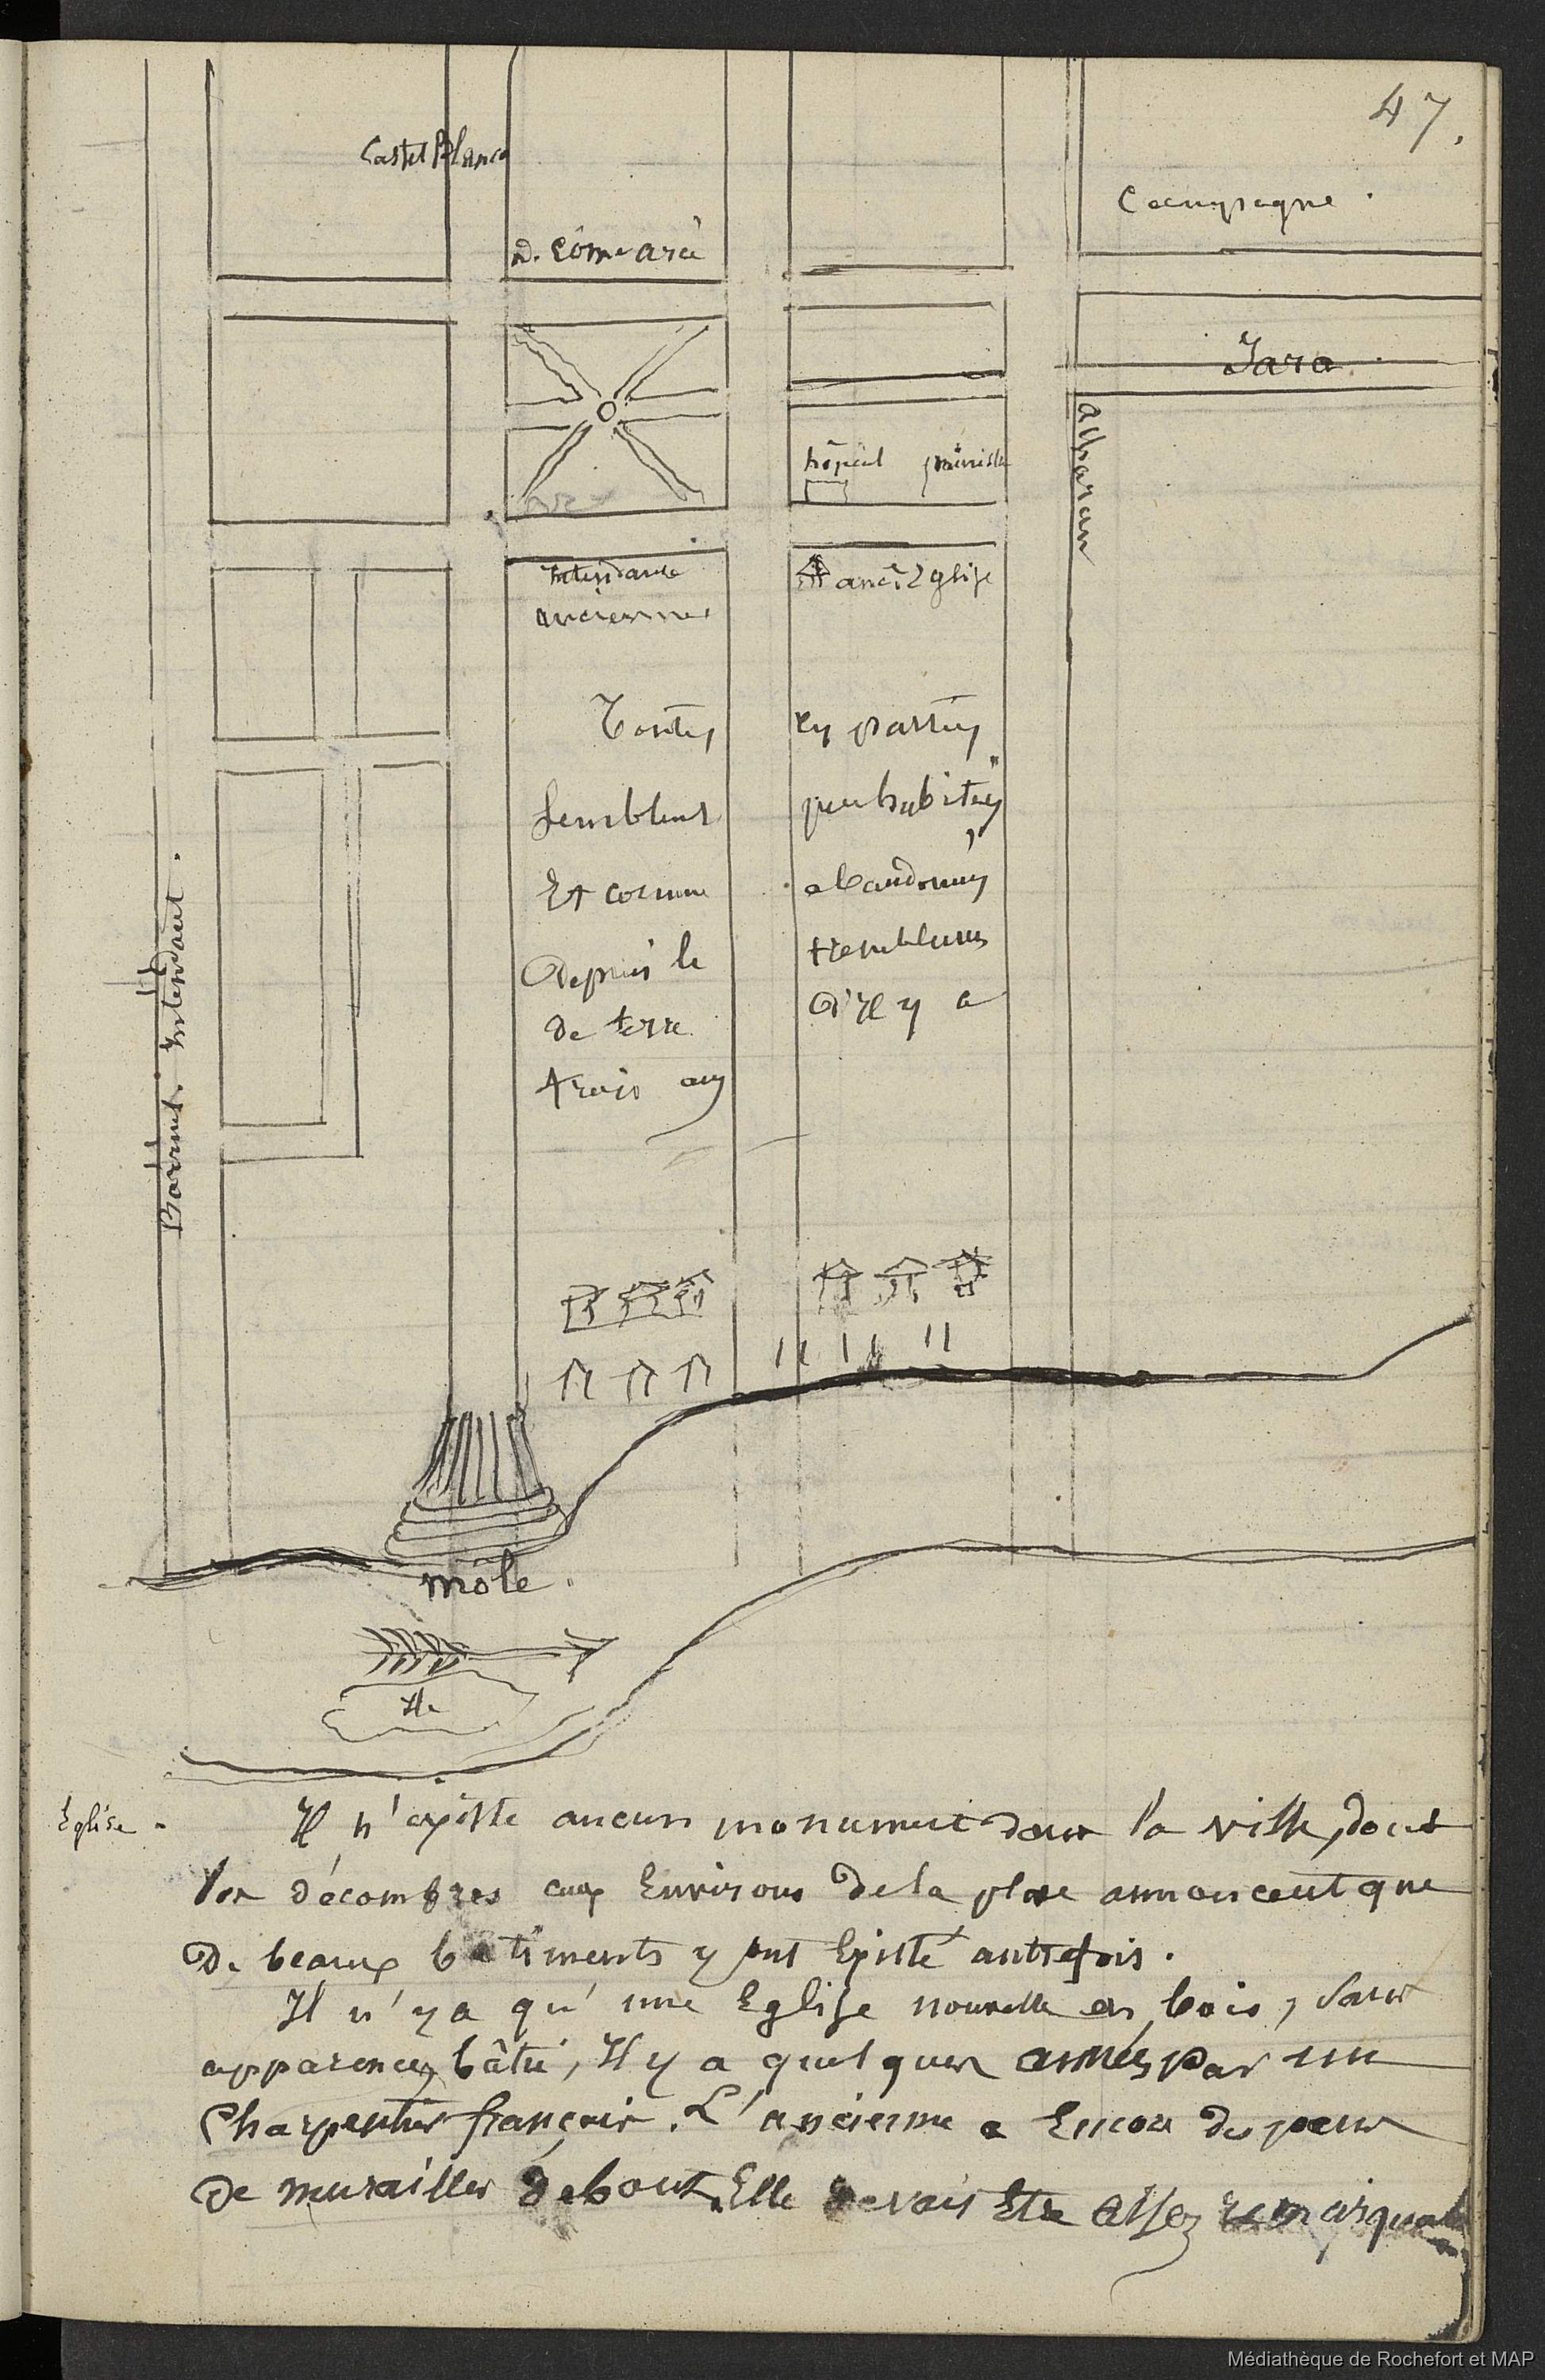 47.
Castel Blanco
Campagne.
D. Côme arcé
Jara.
alharan
hôpital
Intendance
ancienne
anc. Eglise
Toutes ces parties
semblent peu habitées
Et comme abandonnées
Depuis le tremblement
de terre d'Il y a
trois ans
Barrut. Intendant.
môle.
Ile
Eglise -
Il n'existe aucun monument dans la ville, dont
les décombres aux Environs de la place annoncent que
De beaux batiments y ont Existé autrefois.
Il n'y a qu'une Eglise nouvelle en bois, sans
apparence, bâtie, Il y a quelques années par un
Charpentier françois. L'ancienne a Encore des pans
de murailles debout. Elle devait Etre assez remarquable
Médiathèque de Rochefort et MAP